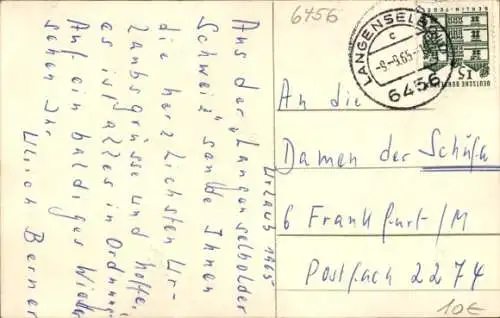 6456
LANGENSELBOLD
c
-9.-9.65-
6456
DEUTSCHE BUNDESPOST
15
Aus der „Langenselbolder
Schweiz" sende Ihnen
die herzlichsten Ur-
laubsgrüsse und hoffe,
es ist alles in Ordnung.
Auf ein baldiges Wieder
sehen Ihr
Ulrich Berner
Urlaub 1965
An die
Damen der Schufa
6 Frankfurt/M
Postfach 2274
10€